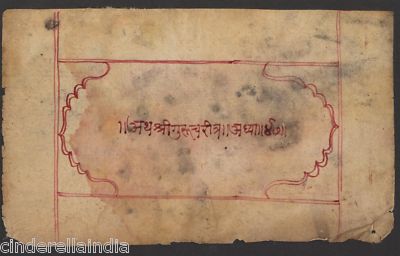 ॥अथश्रीगुरुचरीत्र॥अध्या॥४७॥
cinderellaindia